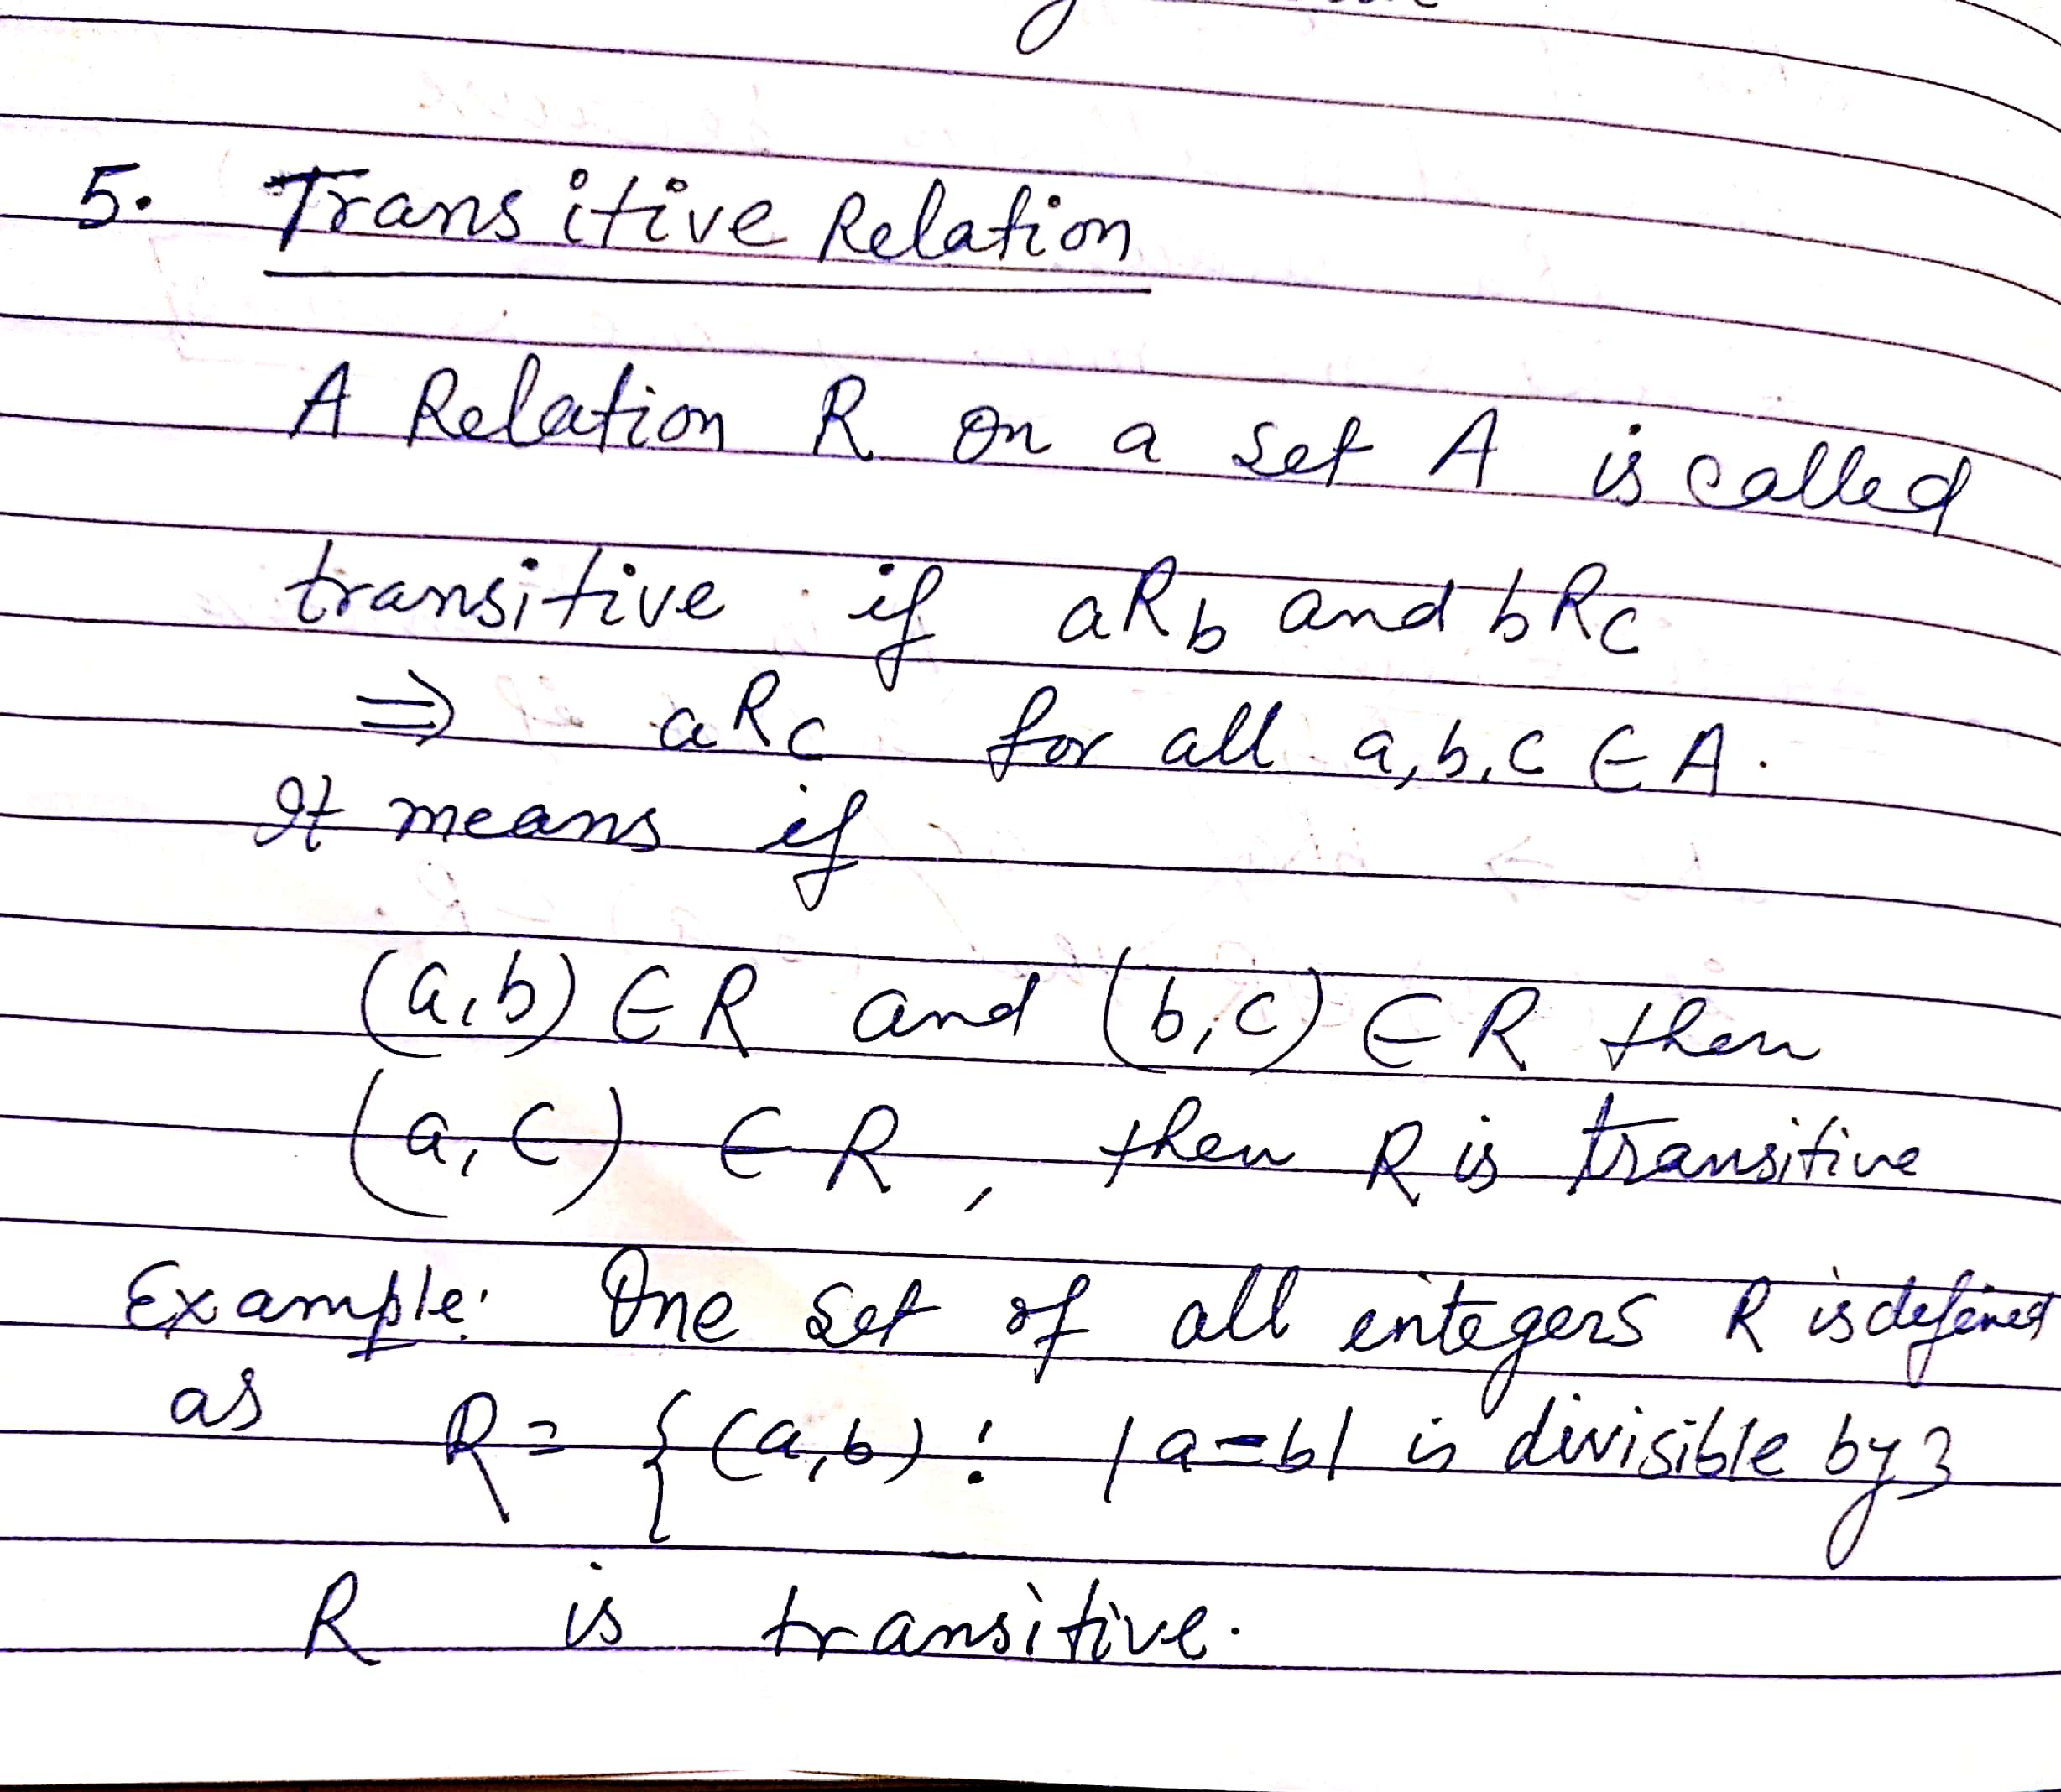 5. Transitive Relation
A Relation R on a set A is called
transitive if aRb and bRc
⇒ aRc for all a,b,c ∈ A.
It means if
(a,b) ∈ R and (b,c) ∈ R then
(a,c) ∈ R, then R is transitive
Example: One set of all integers R is defined
as R = {(a,b) : |a-b| is divisible by 3
R is transitive.